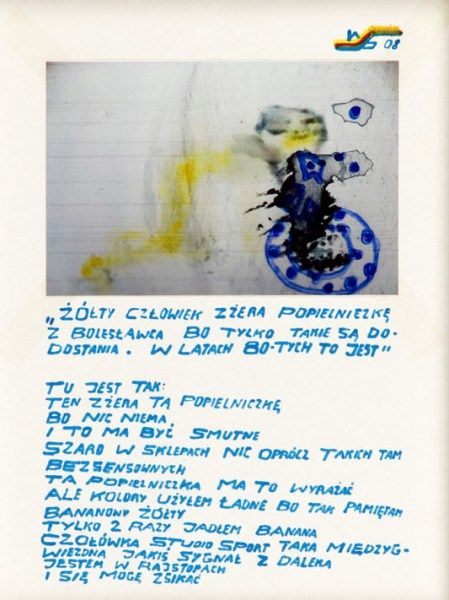 WS 08
„ŻÓŁTY CZŁOWIEK ZŻERA POPIELNICZKĘ
Z BOLESŁAWCA BO TYLKO TAKIE SĄ DO-
DOSTANIA. W LATACH 80-TYCH TO JEST"
TU JEST TAK:
TEN ZŻERA TĄ POPIELNICZKĘ
BO NIC NIEMA
I TO MA BYĆ SMUTNE
SZARO W SKLEPACH NIC OPRÓCZ TAKICH TAM
BEZSENSOWNYCH
TA POPIELNICZKA MA TO WYRAŻAĆ
ALE KOLORY UŻYŁEM ŁADNE BO TAK PAMIĘTAM
BANANOWY ŻÓŁTY
TYLKO 2 RAZY JADŁEM BANANA
CZOŁÓWKA STUDIO SPORT TAKA MIĘDZYG-
WIEZDNA JAKIŚ SYGNAŁ Z DALEKA
JESTEM W RAJSTOPACH
I SIĘ MOGĘ ZSIKAĆ